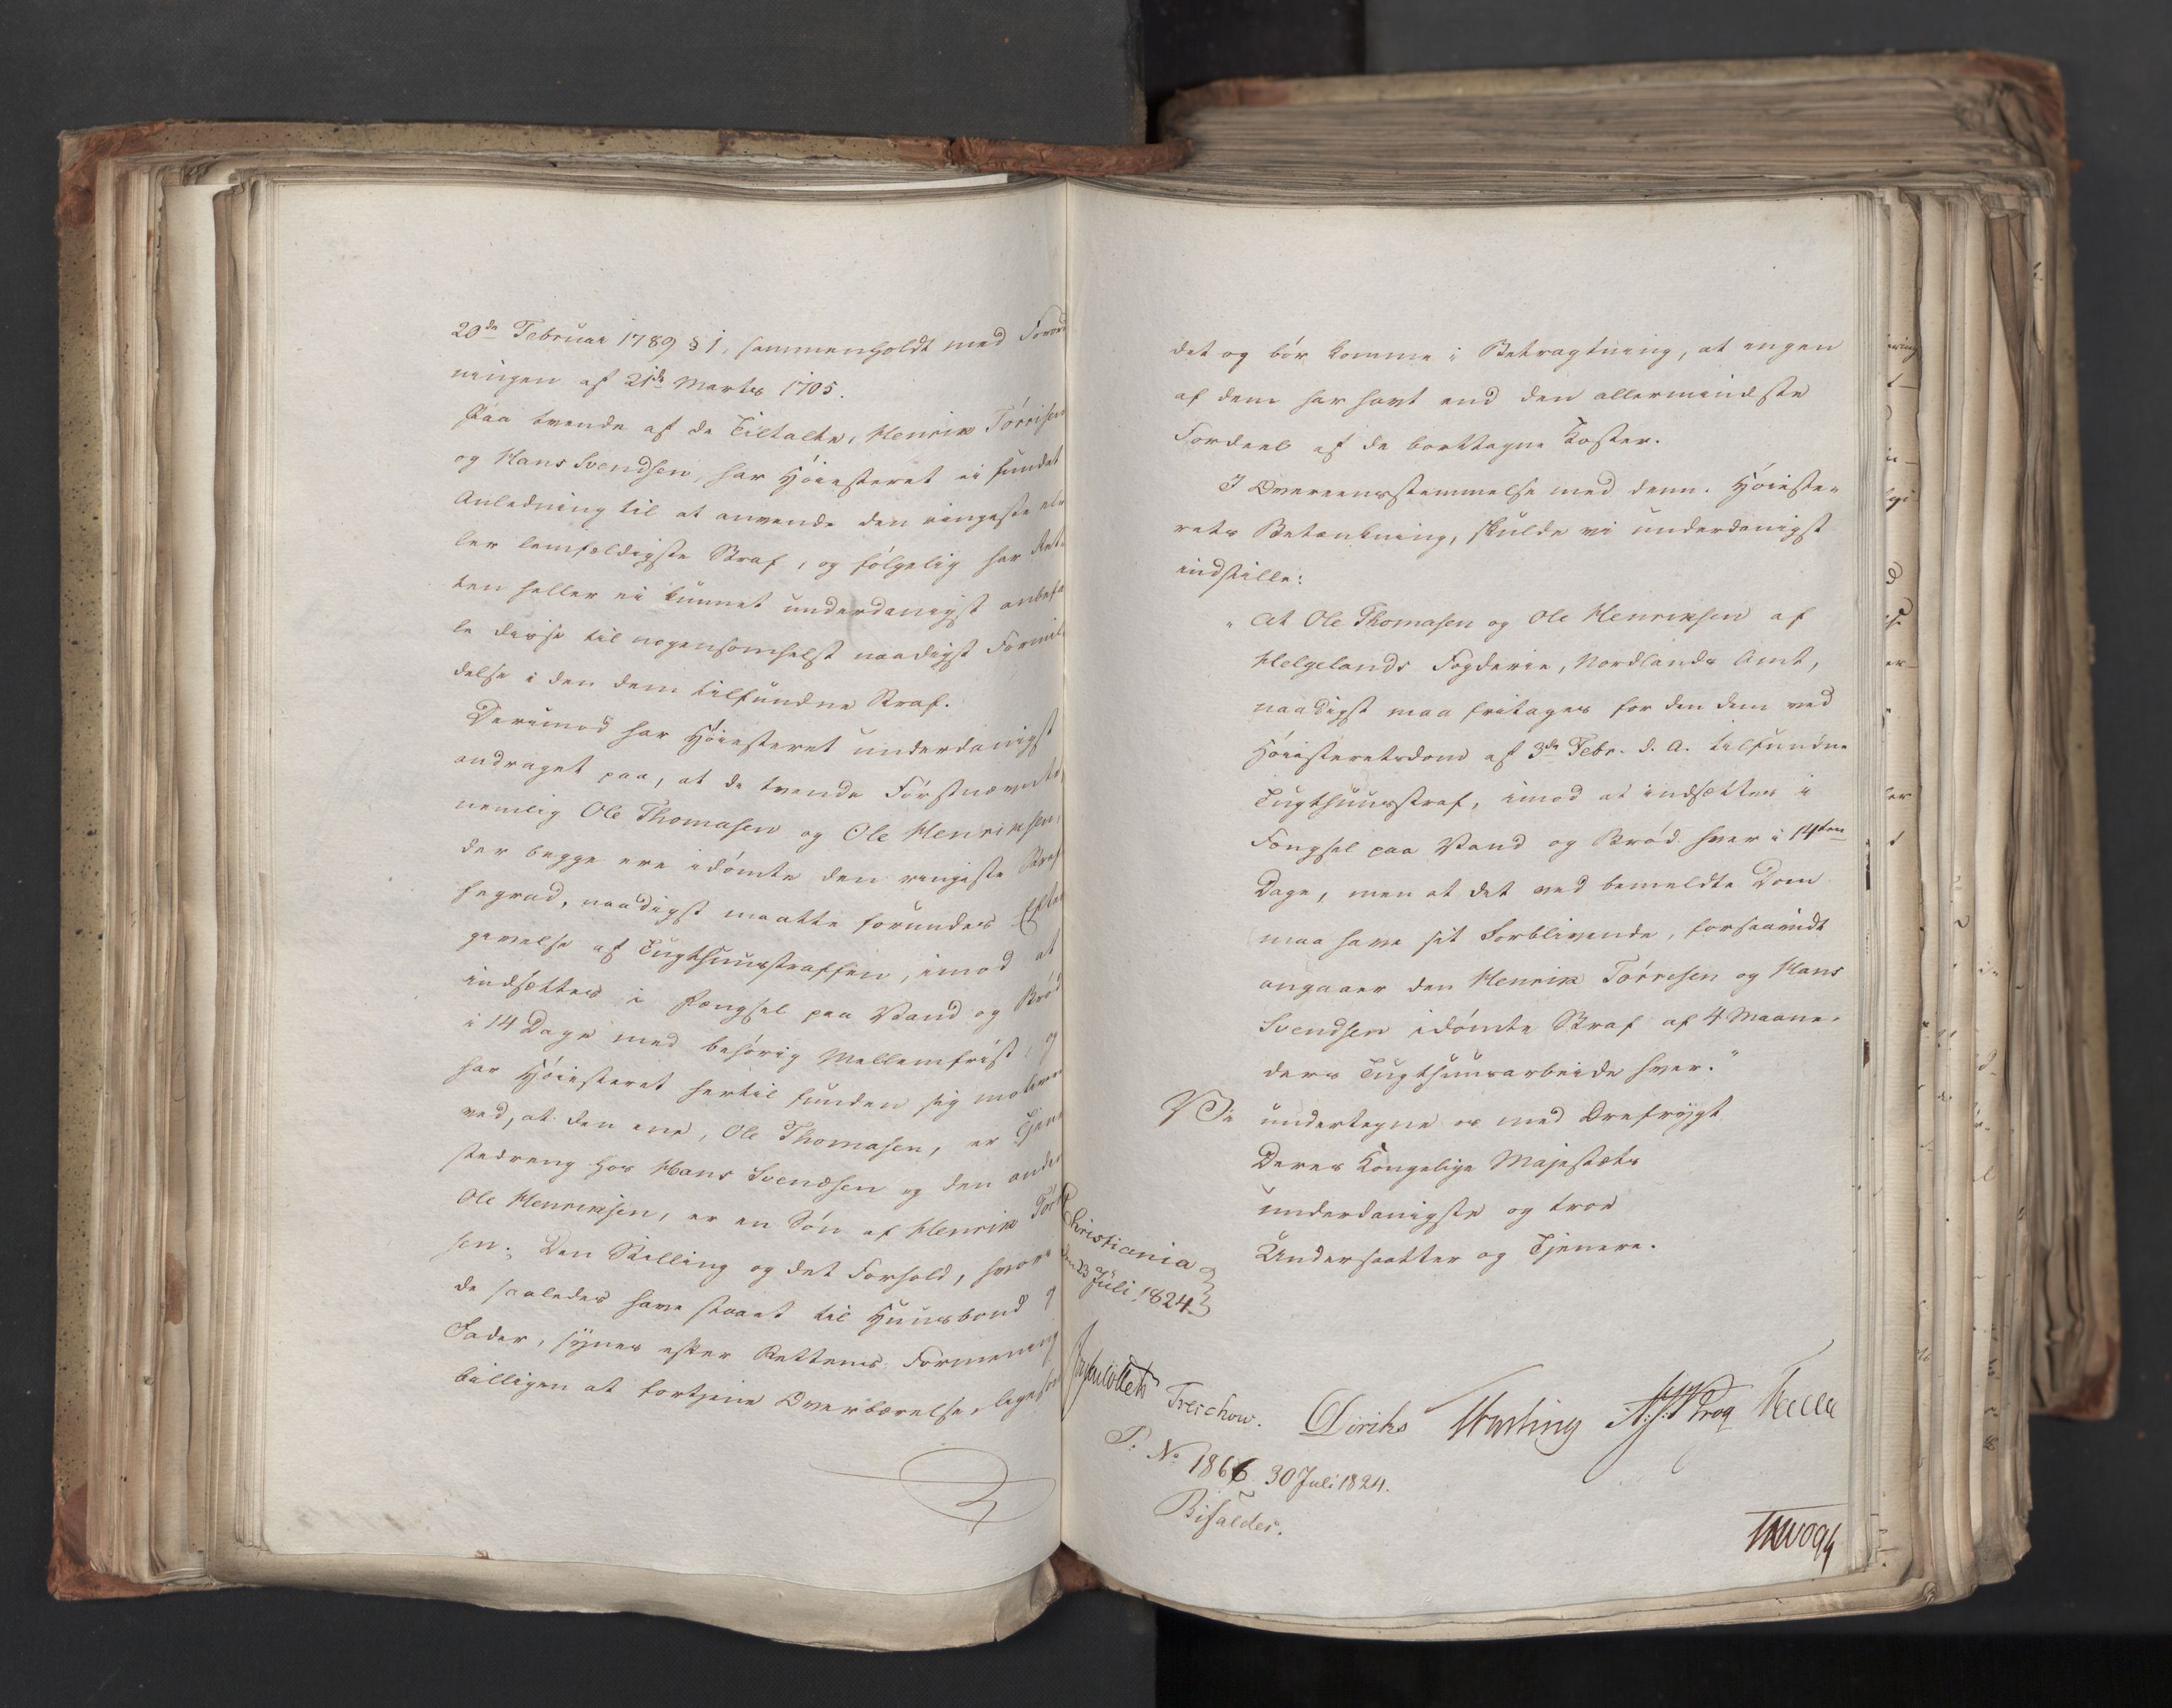 20de Februar 1789 § 1, sammenholdt med Forord
ningen af 21de Martz 1705.
Paa tvende af de Tiltalte, Henrik Törrisen
og Hans Svendsen, har Höiesteret ei fundet
Anledning til at anvende den ringeste el-
ler lemfældigste Straf, og fölgelig har Ret-
ten heller ei kunnet underdanigst anbefa
le disse til nogensomhelst naadigst Formil
delse i den dem tilfundne Straf.
Derimod har Höiesteret underdanigst
andraget paa, at de tvende Förstnævnte,
nemlig Ole Thomasen og Ole Henriksen,
der begge ere idömte den ringeste Straf
fegrad, naadigst maatte forundes Efter
givelse af Tugthuusstraffen, imod at
indsættes i Fængsel paa Vand og Bröd
i 14 Dage med behörig Mellemfrist, og
har Höiesteret hertil funden sig motiveret
ved, at den ene, Ole Thomasen, er Tjene
stedreng hos Hans Svendsen og den anden
Ole Henriksen, er en Sön af Henrik Tör
sen. Den Stilling og det Forhold, hvori
de saaledes have staaet til Huusbond og
Fader, synes efter Rettens Formening
billigen at fortjene Overbærelse, ligesom
det og bör komme i Betragtning, at ingen
af dem har havt end den allermindste
Fordeel af de borttagne Koster.
I Overeensstemmelse med denne Höieste-
rets Betænkning, skulde vi underdanigst
indstille:
"At Ole Thomasen og Ole Henriksen af
Helgelands Fogderie, Nordlands Amt,
naadigst maa fritages for den dem ved
Höiesteretsdom af 3de Febr. d. A. tilfundne
Tugthuusstraf, imod at indsættes i
Fængsel paa Vand og Bröd hver i 14ten
Dage, men at det ved bemeldte Dom
maa have sit Forblivende, forsaavidt
angaaer den Henrik Törresen og Hans
Svendsen idömte Straf af 4 Maane-
ders Tugthuusarbeide hver."
Vi undertegne os med Ærefrygt
Deres Kongelige Majestæts
underdanigste og troe
Undersaatter og Tjenere.
Christiania
den 23 Juli 1824
Treschow. Diriks Motzfeldt
P. No 1866 30 Juli 1824.
Bifaldes.